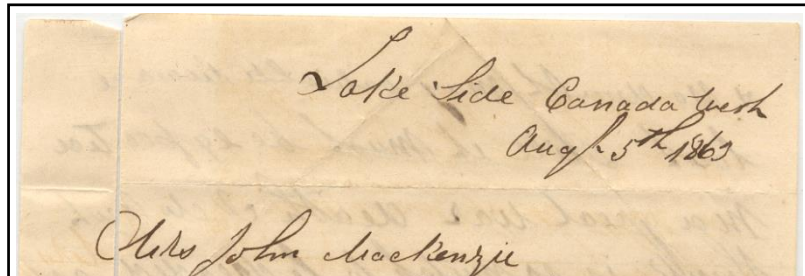 Lake Side Canada West
Augt 5th 1863
Mrs John Mackenzie